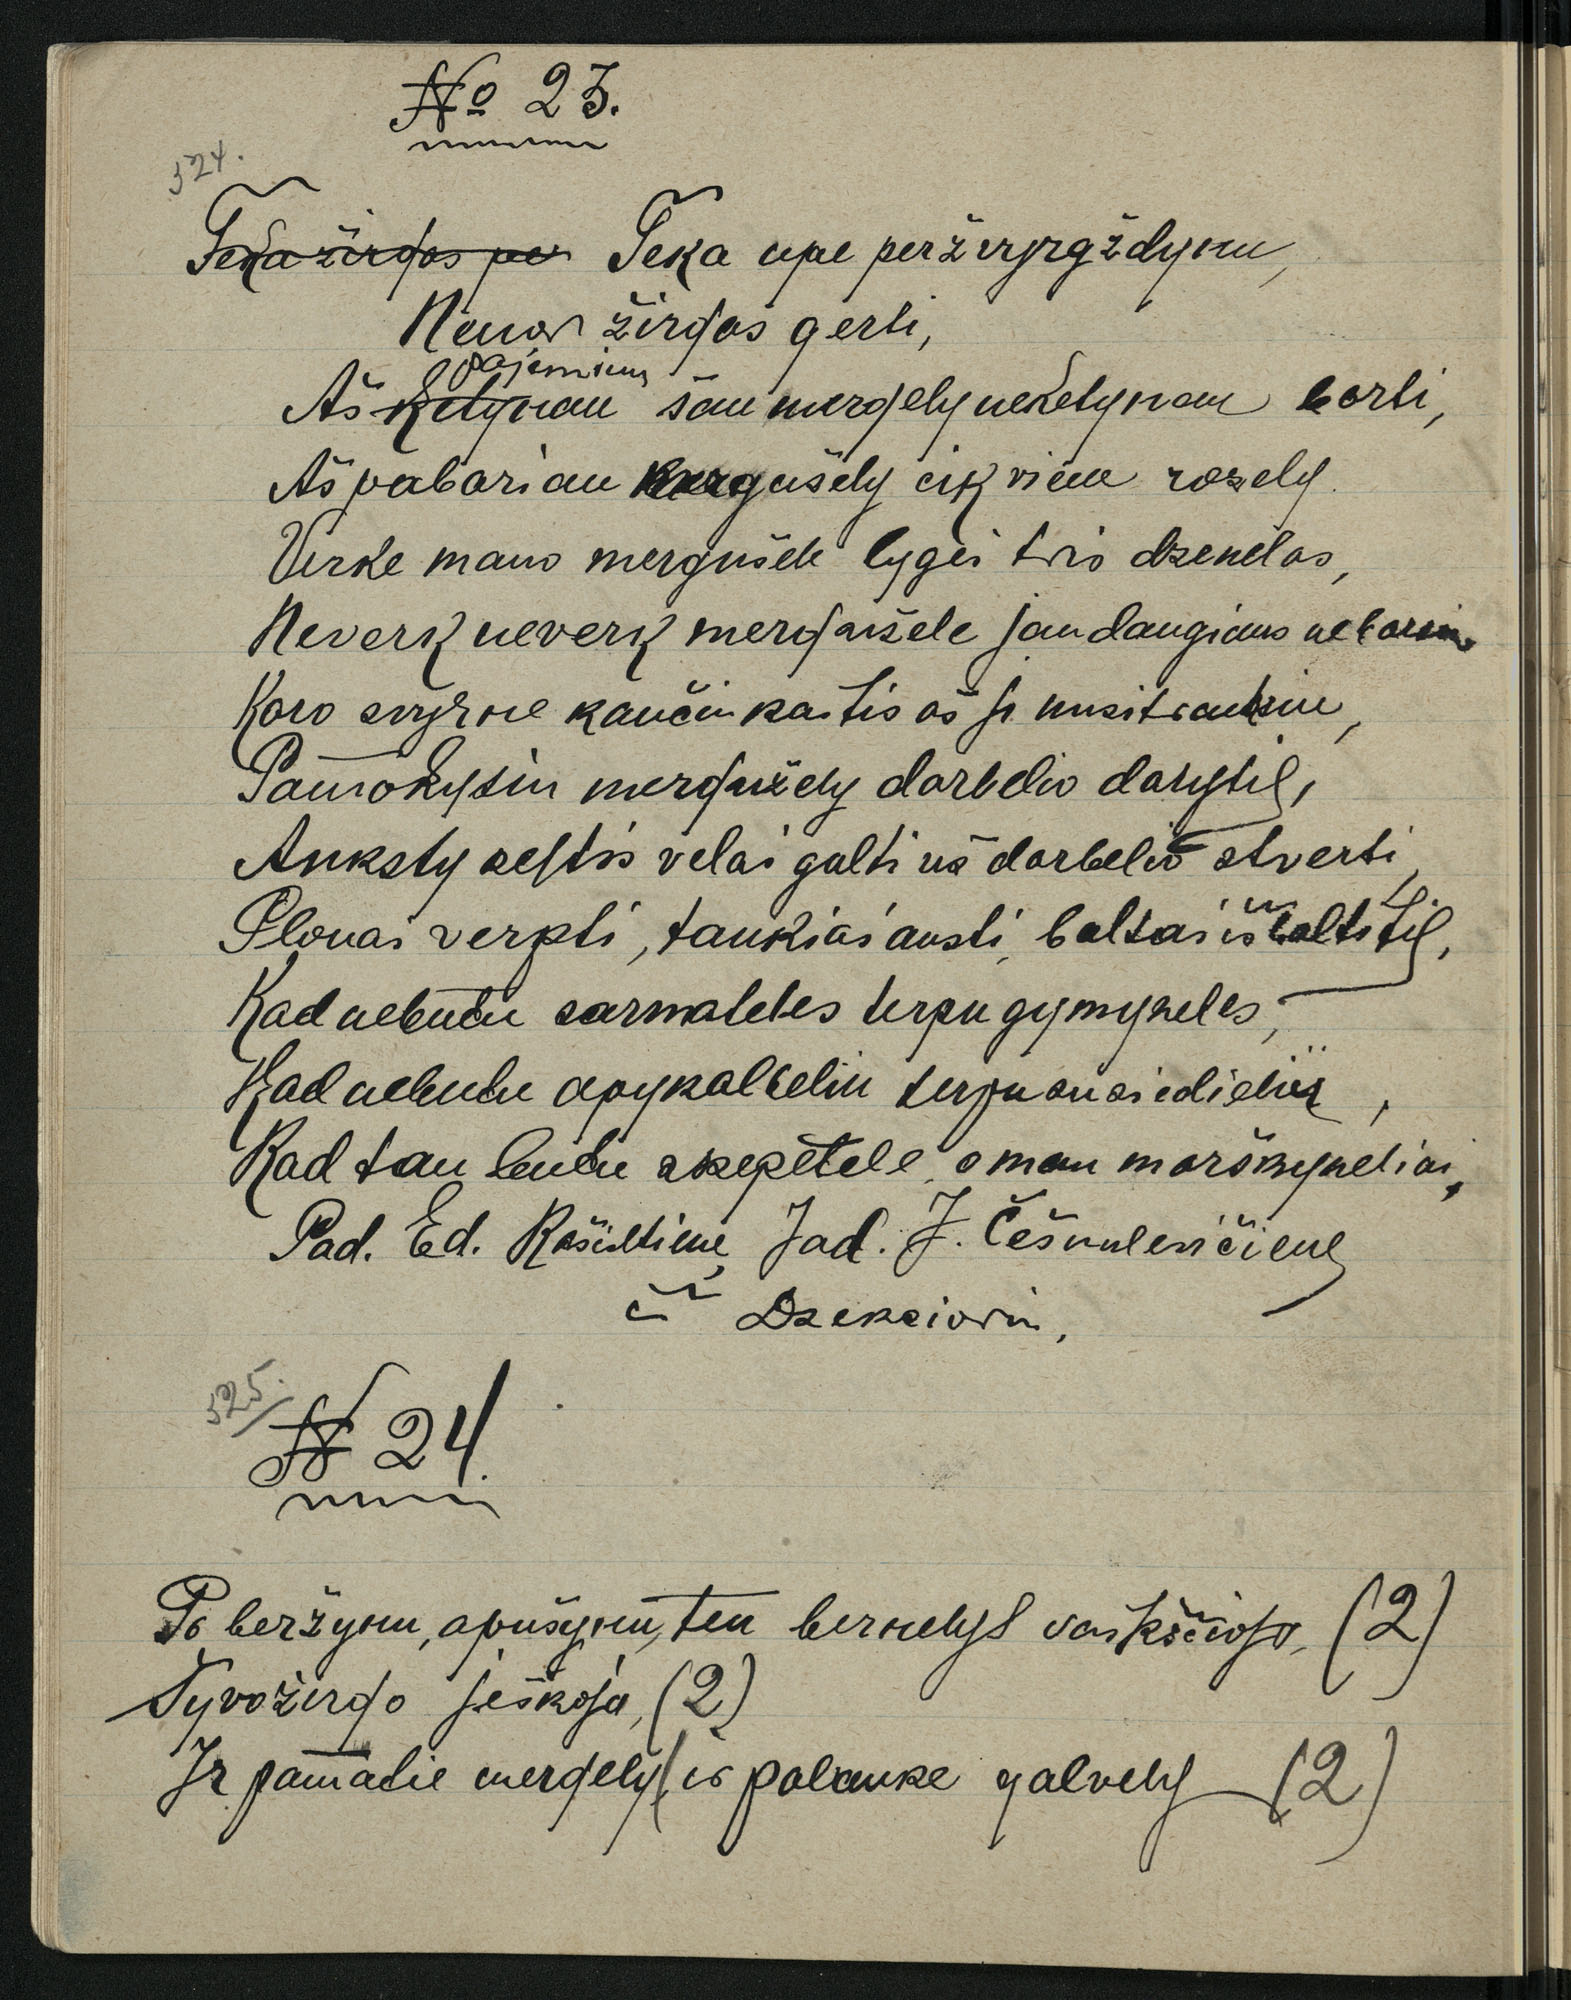 № 23.
324.
Teka žirgas per Teka upe peržvyrgždynu,
Nenor žirgas gerti,
pajemiau
Aš ketynau šau mergely neketynau barti,
Aš pabariau mergušely cik viene rozely.
Verke mano mergušele lygei tris dzenelas,
Neverk neverk mergušele jau daugiaus nebarsiu
Karo svyrne kančiukaitis aš ji nusitrauksiu,
Pamokysiu mergužely darbelio darytie,
Anksty keltis velai gulti už darbelio stverti,
Plonai verpti, tankiai austi, baltai išbaltitie,
Kad nebutu sarmateles terpu gymyneles,
Kad nebutu apykalbeliu terpu susiedieliu,
Kad tau butu skepetele, o man marškyneliai,
Pad. Ed. Rašiultiene, Jad. J. Česnulevičiene
iš Dzeksiorių.
325.
№ 24.
Po beržynu, apušynu, ten bernelys vaikščiojo, (2)
Syvožirgo ješkoja, (2)
Ir pamatie mergely, ir palauke galvely (2)